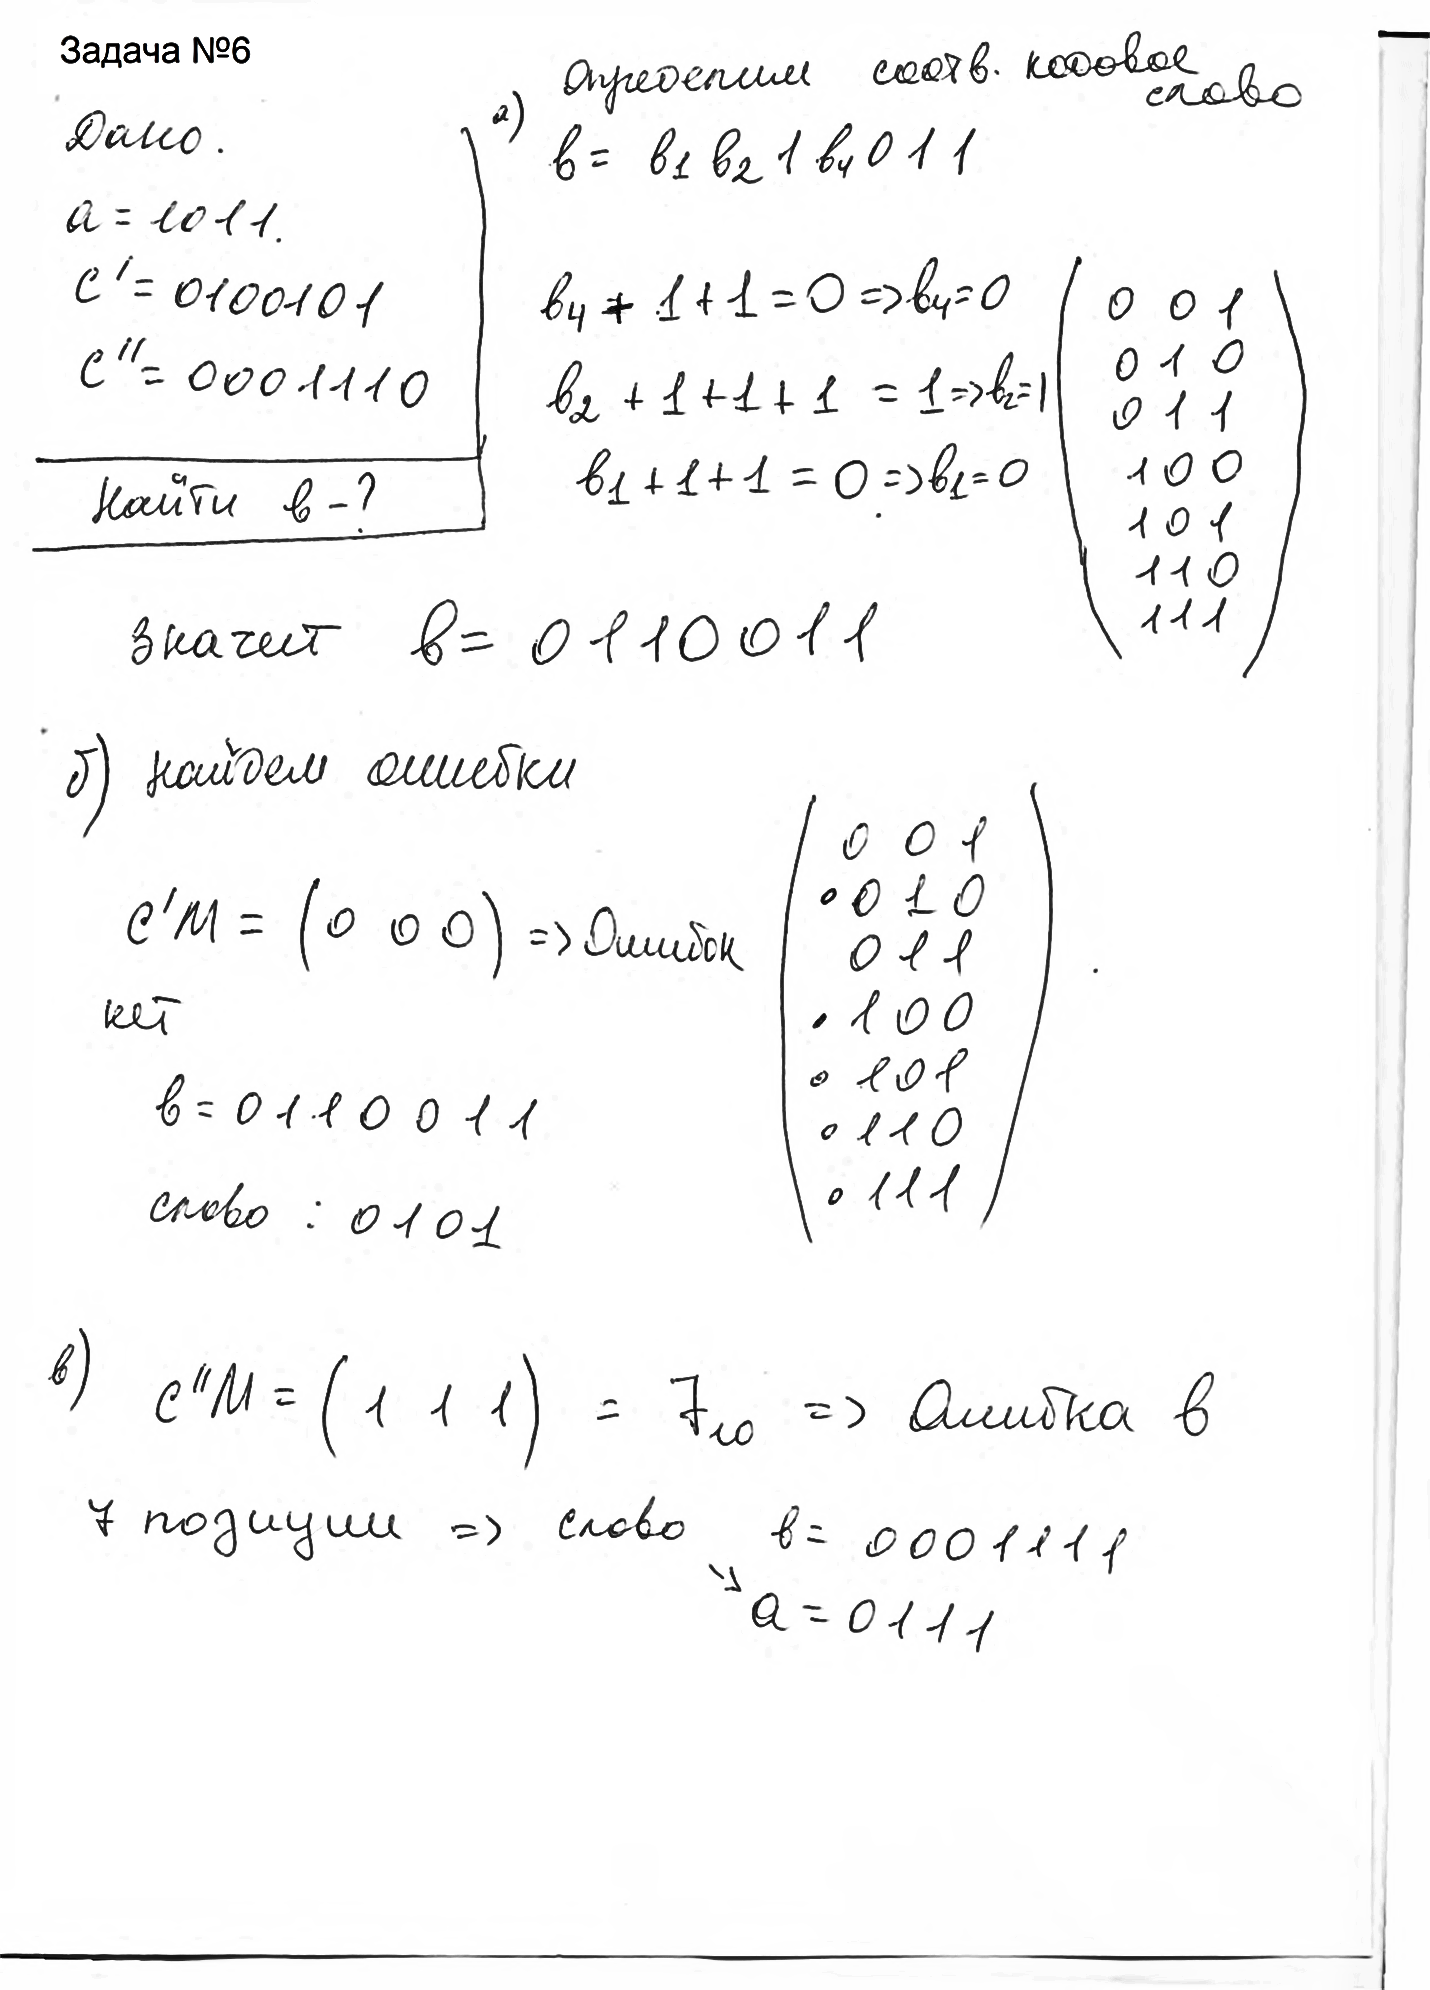 Задача №6
Дано.
a = 1011.
c' = 0100101
c'' = 0001110
Найти в - ?
а) Определим соотв. кодовое слово
в = в1 в2 1 в4 0 1 1
в4 + 1 + 1 = 0 => в4 = 0
в2 + 1 + 1 + 1 = 1 => в2 = 1
в1 + 1 + 1 = 0 => в1 = 0
0 0 1
0 1 0
0 1 1
1 0 0
1 0 1
1 1 0
1 1 1
значит в = 0110011
б) найдем ошибки
c'M = (0 0 0) => Ошибок
нет
в = 0110011
слово : 0101
0 0 1
0 1 0
0 1 1
1 0 0
1 0 1
1 1 0
1 1 1
в) c''M = (1 1 1) = 7₁₀ => Ошибка в
7 позиции => слово в = 0001111
a = 0111